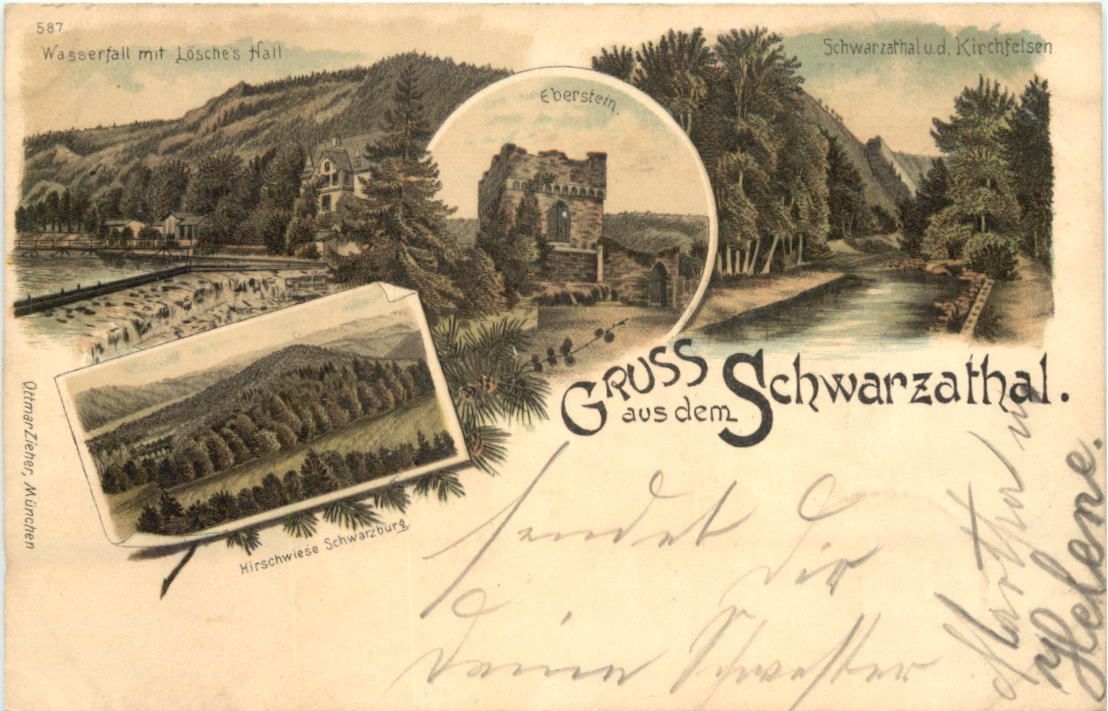 587.
Wasserfall mit Lösche's Hall
Eberstein.
Schwarzathal u. d. Kirchfelsen
Gruss
aus dem Schwarzathal.
Hirschwiese Schwarzburg.
Ottmar Zieher, München
sendet Dir
Deine Schwester
Martha u.
Helene.